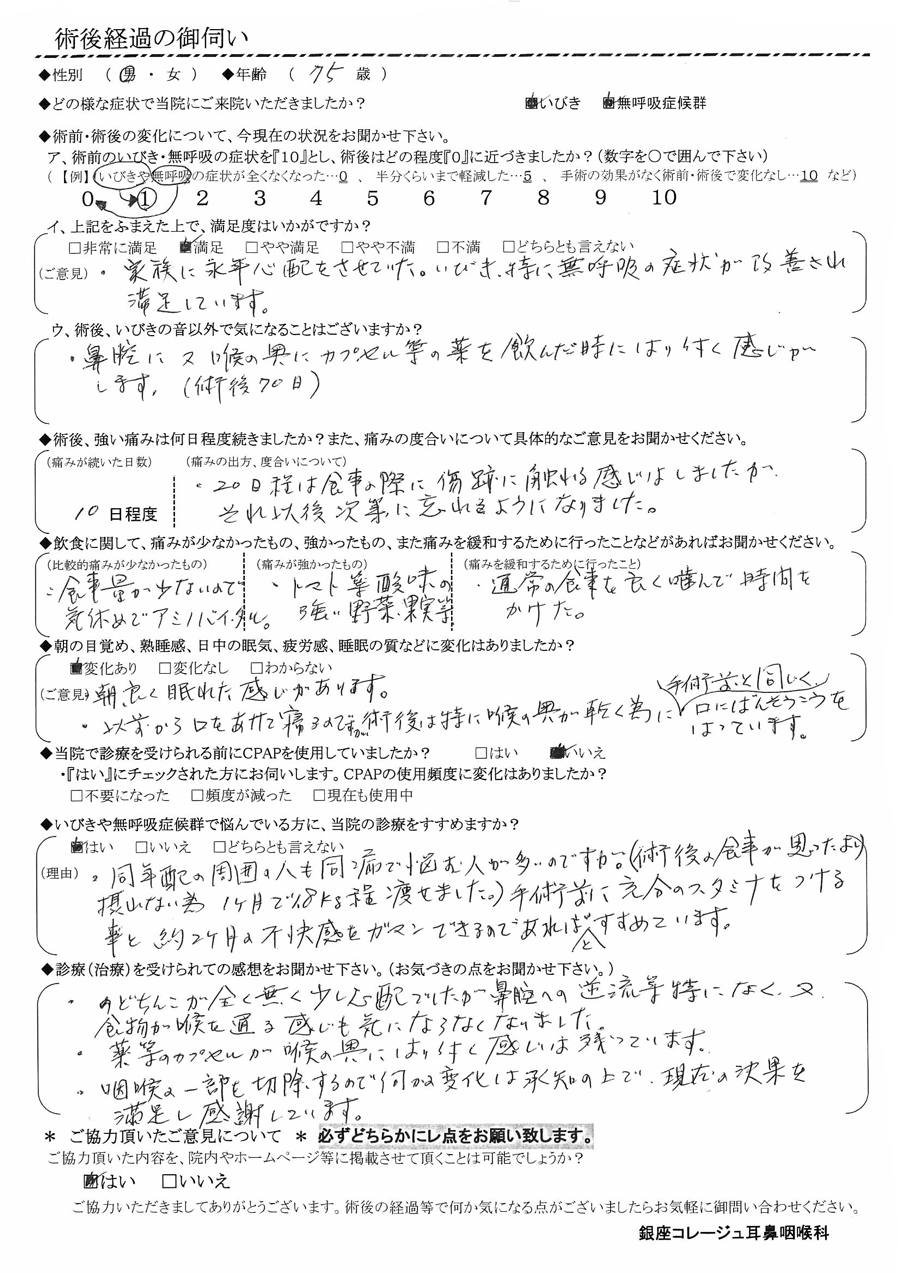 術後経過の御伺い
◆性別 （ 男 ・ 女 ） ◆年齢 （ 75 歳 ）
◆どの様な症状で当院にご来院いただきましたか？ ■いびき ■無呼吸症候群
◆術前・術後の変化について、今現在の状況をお聞かせ下さい。
ア、術前のいびき・無呼吸の症状を『10』とし、術後はどの程度『0』に近づきましたか？（数字を○で囲んで下さい）
（ 【例】（いびきや無呼吸の症状が全くなくなった…0 、 半分くらいまで軽減した…5 、 手術の効果がなく術前・術後で変化なし…10 など）
0 1 2 3 4 5 6 7 8 9 10
イ、上記をふまえた上で、満足度はいかがですか？
□非常に満足 ■満足 □やや満足 □やや不満 □不満 □どちらとも言えない
(ご意見) ・家族に永年心配をさせていた。いびき、特に無呼吸の症状が改善され
満足しています。
ウ、術後、いびきの音以外で気になることはございますか？
・鼻腔に又喉の奥にカプセル等の薬を飲んだ時にはり付く感じが
します。（術後70日）
◆術後、強い痛みは何日程度続きましたか？また、痛みの度合いについて具体的なご意見をお聞かせください。
(痛みが続いた日数) (痛みの出方、度合いについて)
・20日程は食事の際に傷跡に触れる感じはしましたが、
10 日程度 それ以後次第に忘れるようになりました。
◆飲食に関して、痛みが少なかったもの、強かったもの、また痛みを緩和するために行ったことなどがあればお聞かせください。
(比較的痛みが少なかったもの) (痛みが強かったもの) (痛みを緩和するために行ったこと)
・食事量が少ないので ・トマト等酸味の ・通常の食事を良く噛んで時間を
気休めでアミノバイタル。 強い野菜、果実等 かけた。
◆朝の目覚め、熟睡感、日中の眠気、疲労感、睡眠の質などに変化はありましたか？
■変化あり □変化なし □わからない
(ご意見)・朝、良く眠れた感じがあります。 手術前と同じく
・以前から口をあけて寝るので術後は特に喉の奥が乾く為に口にばんそうこうを
はっています。
◆当院で診療を受けられる前にCPAPを使用していましたか？ □はい ■いいえ
・『はい』にチェックされた方にお伺いします。CPAPの使用頻度に変化はありましたか？
□不要になった □頻度が減った □現在も使用中
◆いびきや無呼吸症候群で悩んでいる方に、当院の診療をすすめますか？
■はい □いいえ □どちらとも言えない
(理由) ・同年配の周囲の人も同じ病で悩む人が多いのですが。（術後の食事が思ったより
摂れない為 1ケ月で8kg程痩せました。）手術前に充分のスタミナをつける
事と約2ケ月の不快感をガマンできるのであればとすすめています。
◆診療（治療）を受けられての感想をお聞かせ下さい。（お気づきの点をお聞かせ下さい。）
・のどちんこが全く無く少し心配でしたが鼻腔への逆流等特になく、又、
食物が喉を通る感じも気にならなくなりました。
・薬等のカプセルが喉の奥にはり付く感じは残っています。
・咽喉の一部を切除するので何かの変化は承知の上で、現在の決果を
満足し感謝しています。
＊ ご協力頂いたご意見について ＊ 必ずどちらかにレ点をお願い致します。
ご協力頂いた内容を、院内やホームページ等に掲載させて頂くことは可能でしょうか？
■はい □いいえ
ご協力いただきましてありがとうございます。術後の経過等で何か気になる点がございましたらお気軽に御問い合わせください。
銀座コレージュ耳鼻咽喉科